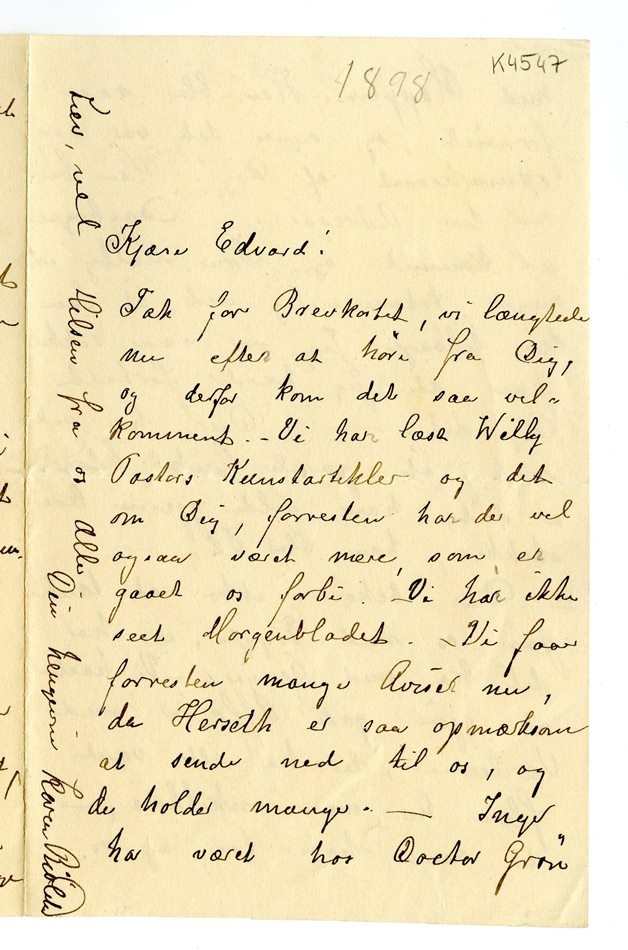 K4547
1898
Kjære Edvard!
Tak for Brevkortet, vi længtede
nu efter at höre fra Dig,
og derfor kom det saa vel-
komment. - Vi har læst Willy
Pastors Kunstartikler og det
om Dig, forresten har der vel
ogsaa været mere, som er
gaaet os forbi. Vi har ikke
seet Morgenbladet. - Vi faar
forresten mange Aviser nu,
da Herseth er saa opmærksom
at sende ned til os, og
de holder mange. — Inger
har været hos Doctor Grön
Lev vel Hilsen fra os alle.
Din hengivne Karen Bjölstad